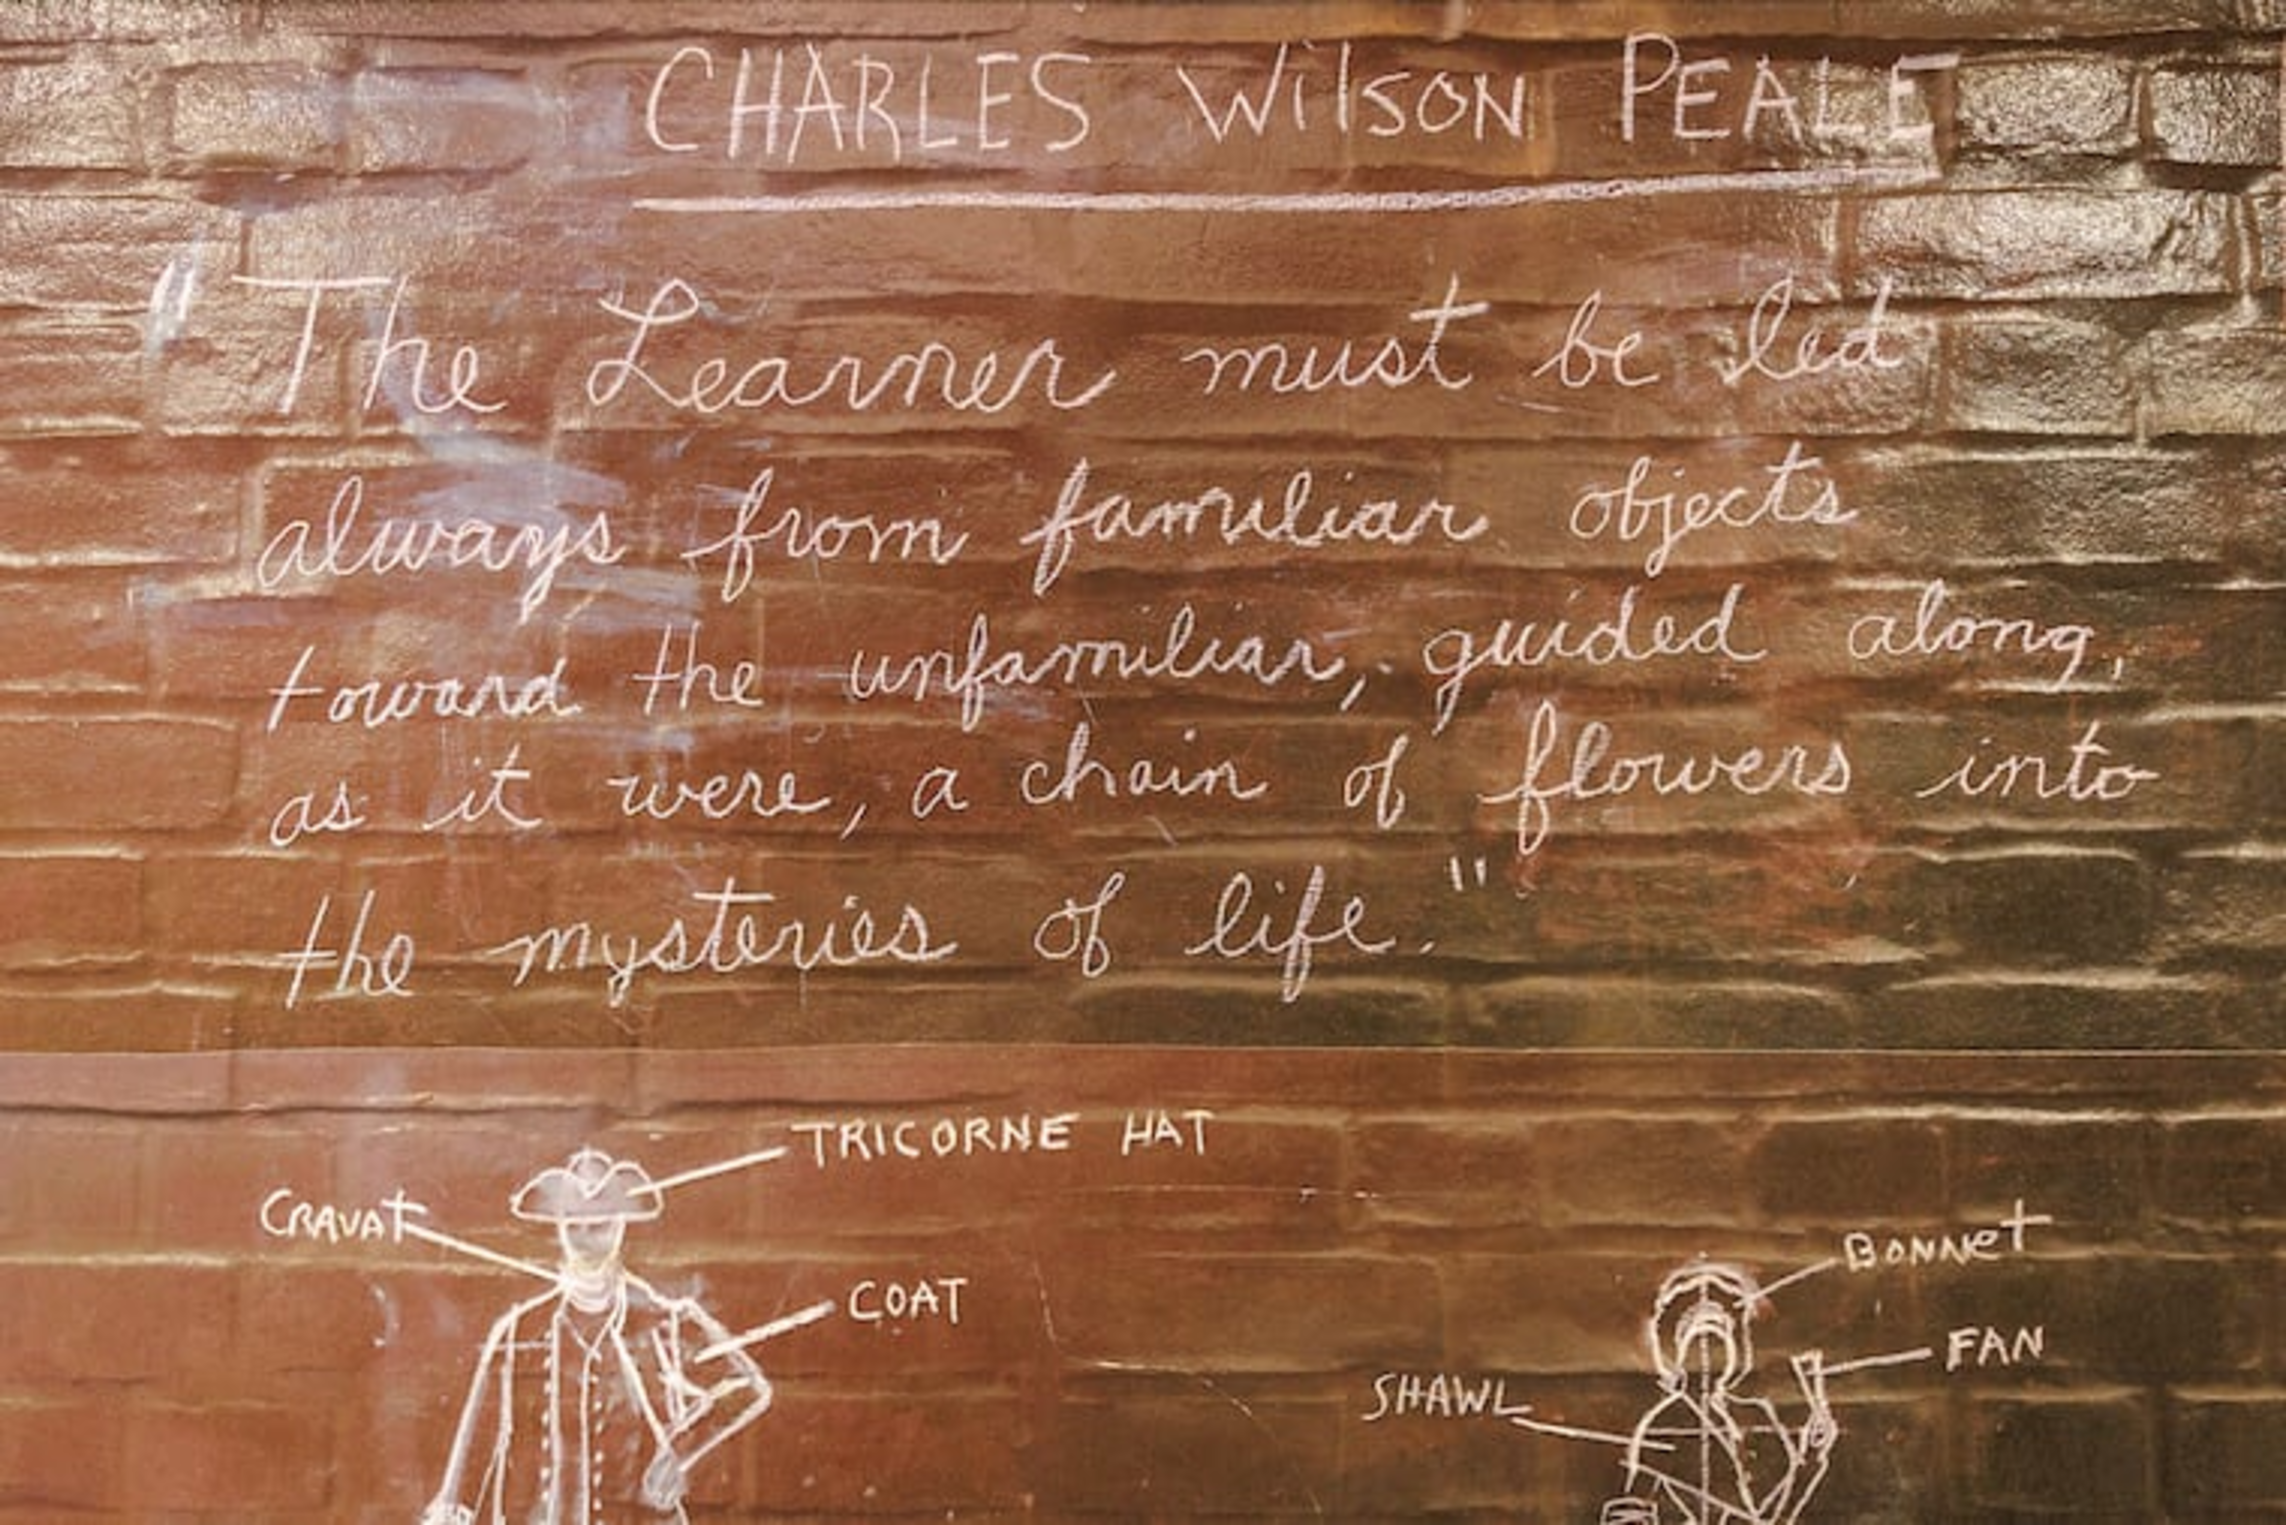 CHARLES Wilson PEALE
"The Learner must be led
always from familiar objects
toward the unfamiliar, guided along,
as it were, a chain of flowers into
the mysteries of life."
TRICORNE HAT
CRAVAT
COAT
BONNet
FAN
SHAWL